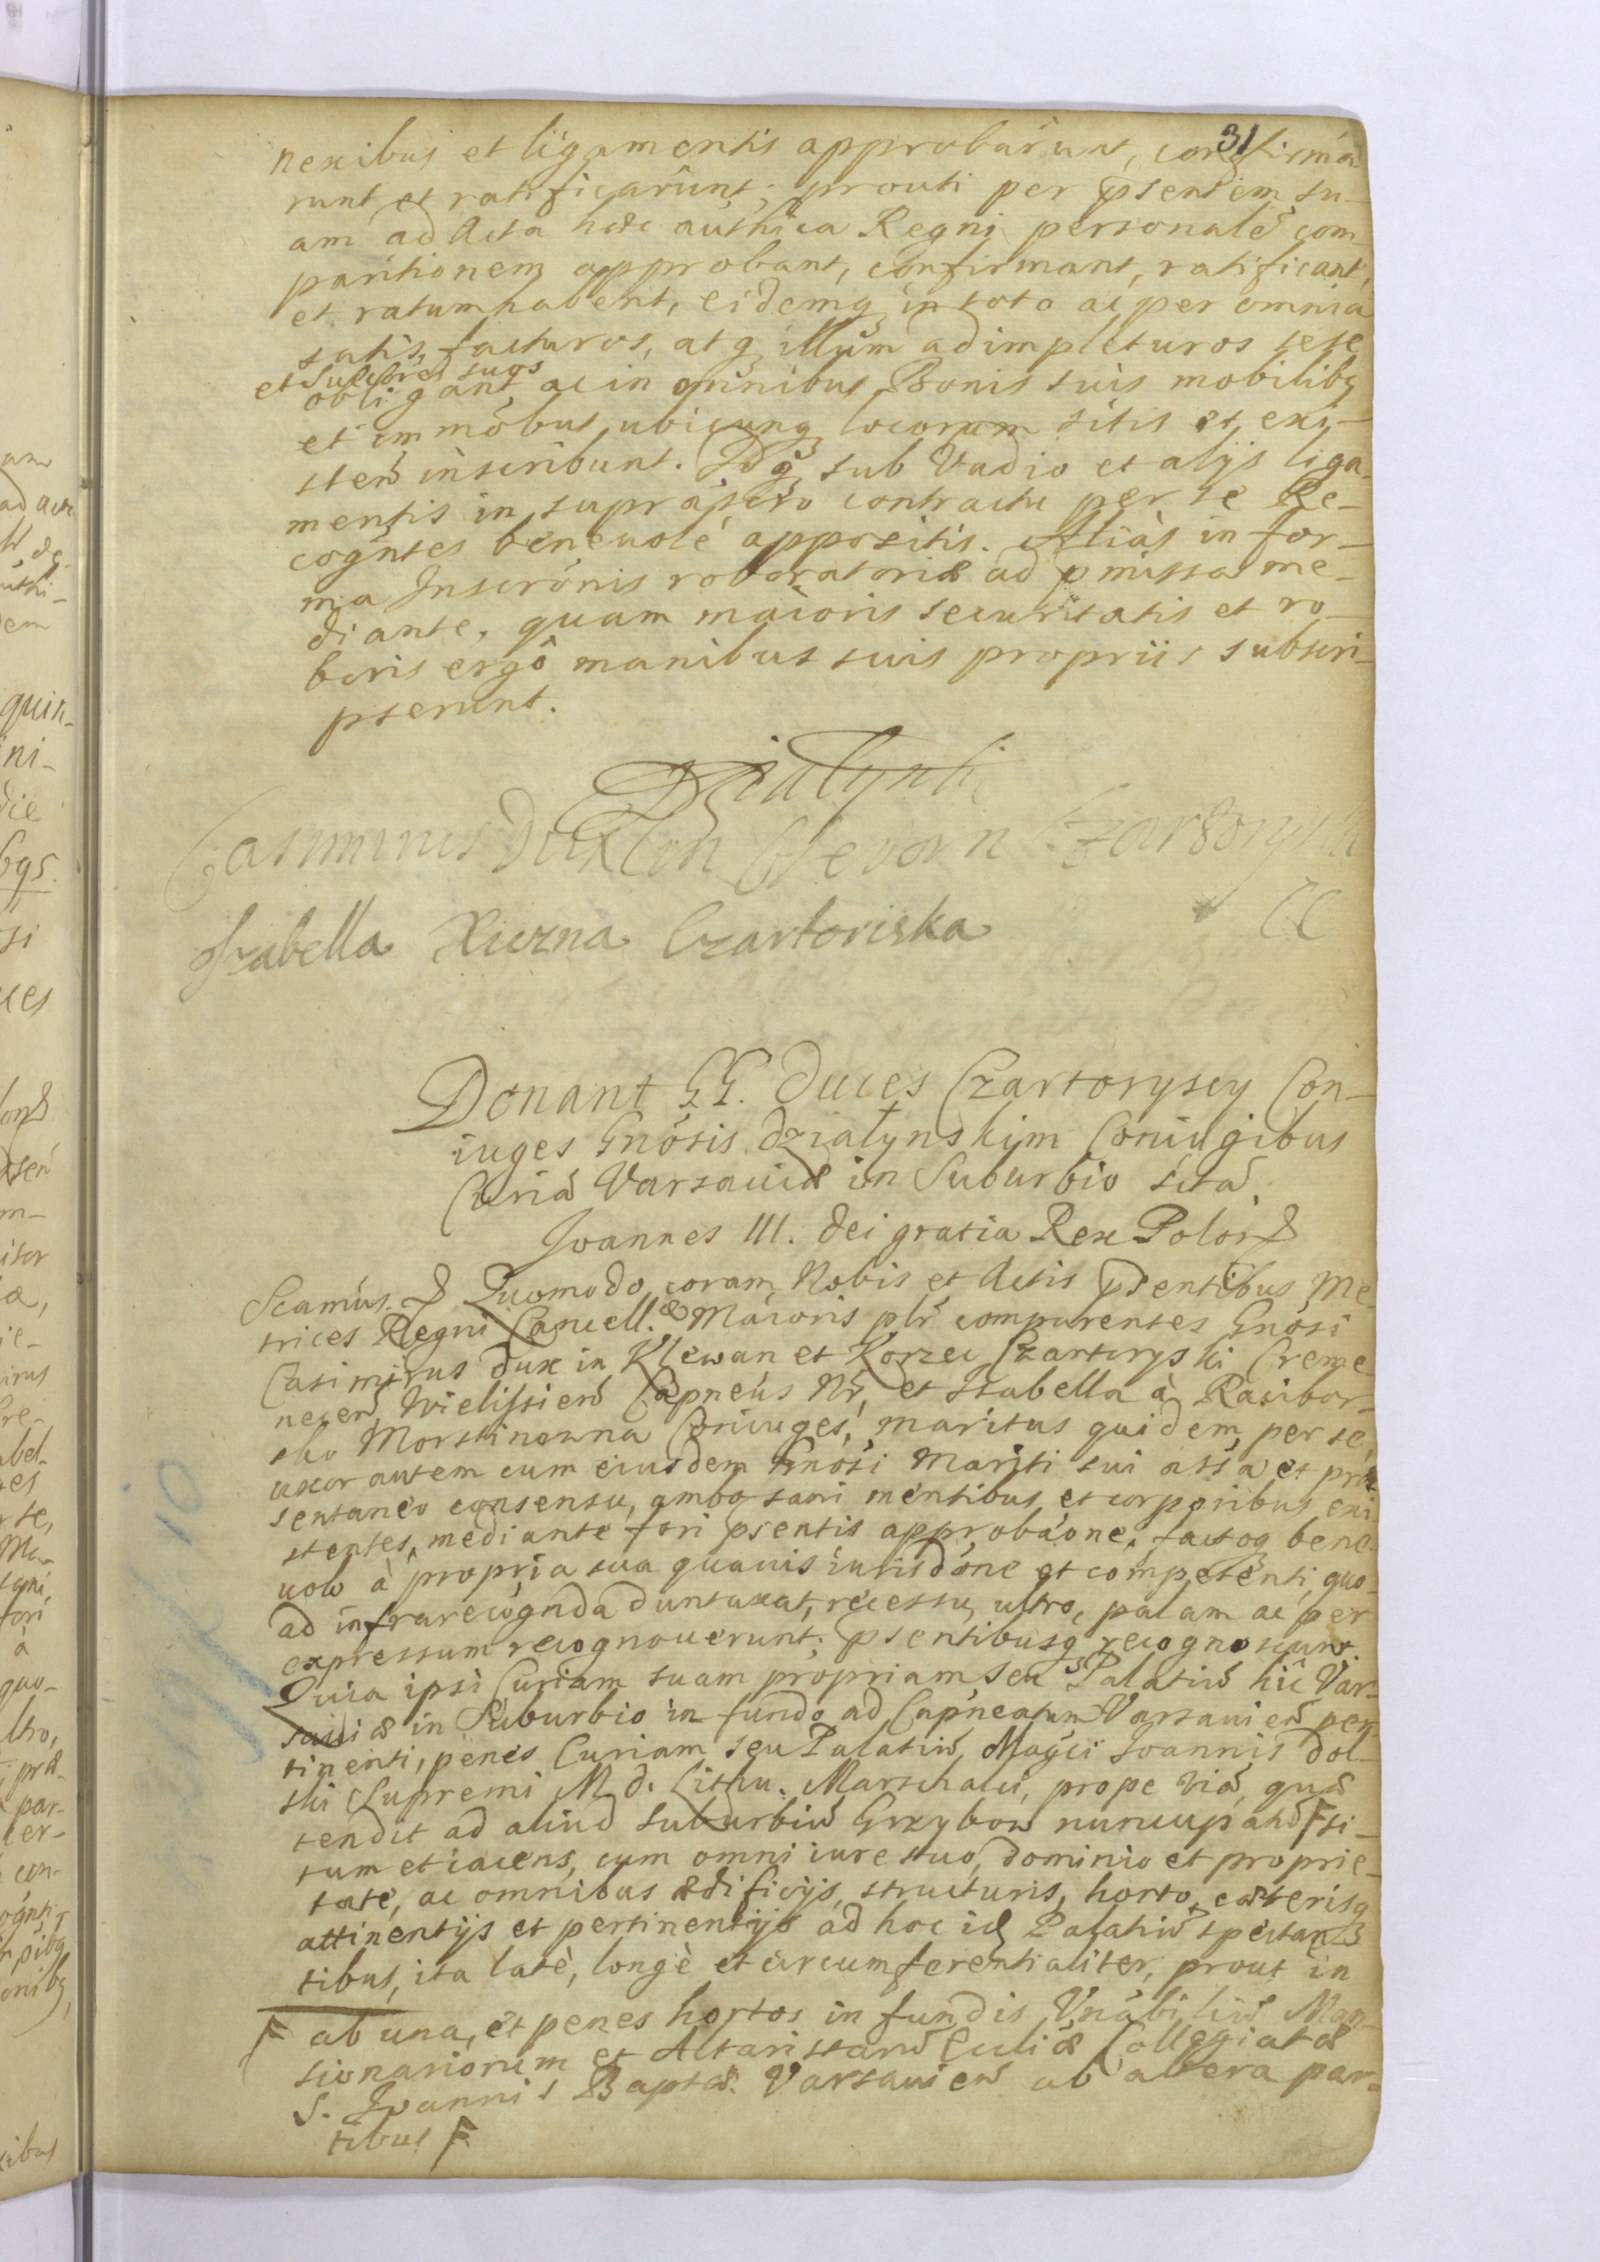 31
nexibus et ligamentis approbârunt, confirmâ
runt et ratificârunt; prouti per psentem su-
am ad Acta haec auth̃ica Regni personalẽ com-
paritionem approbant, confirmant, ratificant,
et ratum habent, eidemq, in toto ac per omnia
satis, facturos, atq, illum adimpleturos sese
et Succôres suos
obligant, ac in omnibus Bonis suis mobilibq
et immõbus, ubicunq, locorum sitis et exi-
steñ inscribunt. Idq, sub Vadio et alijs liga-
mentis in suprascto contractu per se Re-
cogñtes beneuolé appositis. Aliàs in for-
ma Inscrõnis roboratoriæ ad pmissa me-
diante, quam maioris securitatis et ro-
boris ergô manibus suis propriis subscri-
pserunt.
Działyński
Casimirus Dux in Klevan Czartoryski
Izabella Xiezna Czartoriska
Donant GG. Duces Czartoryscy Con-
iuges Gnõsis Działynskim Coniugibus
Curiã Varsauiæ in Suburbio sitã.
Joannes III. Dei gratia Rex Polor &
Scamus. & Quomodo coram Nobis et Actis psentibus Me
trices Regni Cancell.æ Maioris plr̃ comparentes Gnõsi
Casimirus Dux in Klewan et Korzec Czartoryski Creme
neceñ, Wielisscieñ Capneus Nr̃, et Isabella à Racibor-
sko Morstinowna Coniuges, maritus quidem per se,
uxor autem cum eiusdem Gnõsi Mariti sui assã et præ
sentaneo consensu, ambo sani mentibus et corporibus exi
stentes, mediante fori psentis approbãone, factoq bene
uolo à propria sua quauis iurisdõne et competenti, quo-
ad infrarecognda duntaxat, recessu, ultro, palam ac per
expressum recognouerunt; psentibusq, recognoscunt.
Quia ipsi Curiam suam propriam, seu Palatiũ hic Var-
sauiæ in Suburbio in fundo ad Capneatum Varsauieñ per
tinenti, penes Curiam seu Palatiũ Mag̃ci Joannis Dol-
ski Supremi M. D. Lithu. Marschalci, prope viã, quæ
tendit ad aliud suburbiũ Grzybow nuncupatũ F si-
tum et iacens, cum omni iure suo, dominio et proprie-
tate, ac omnibus ædificijs, structuris, horto, cæterisq
attinentijs et pertinentijs ad hoc id Palatiũ spectan
tibus, ita latè, longè et circumferentialiter, prout in
F ab una, et penes hortos in fundis Vnãbiliũ Man-
sionariorum et Altaristarũ Ecclïæ Collegiatæ
S. Joannis Baptæ. Varsauieñ ab altera par-
tibus F